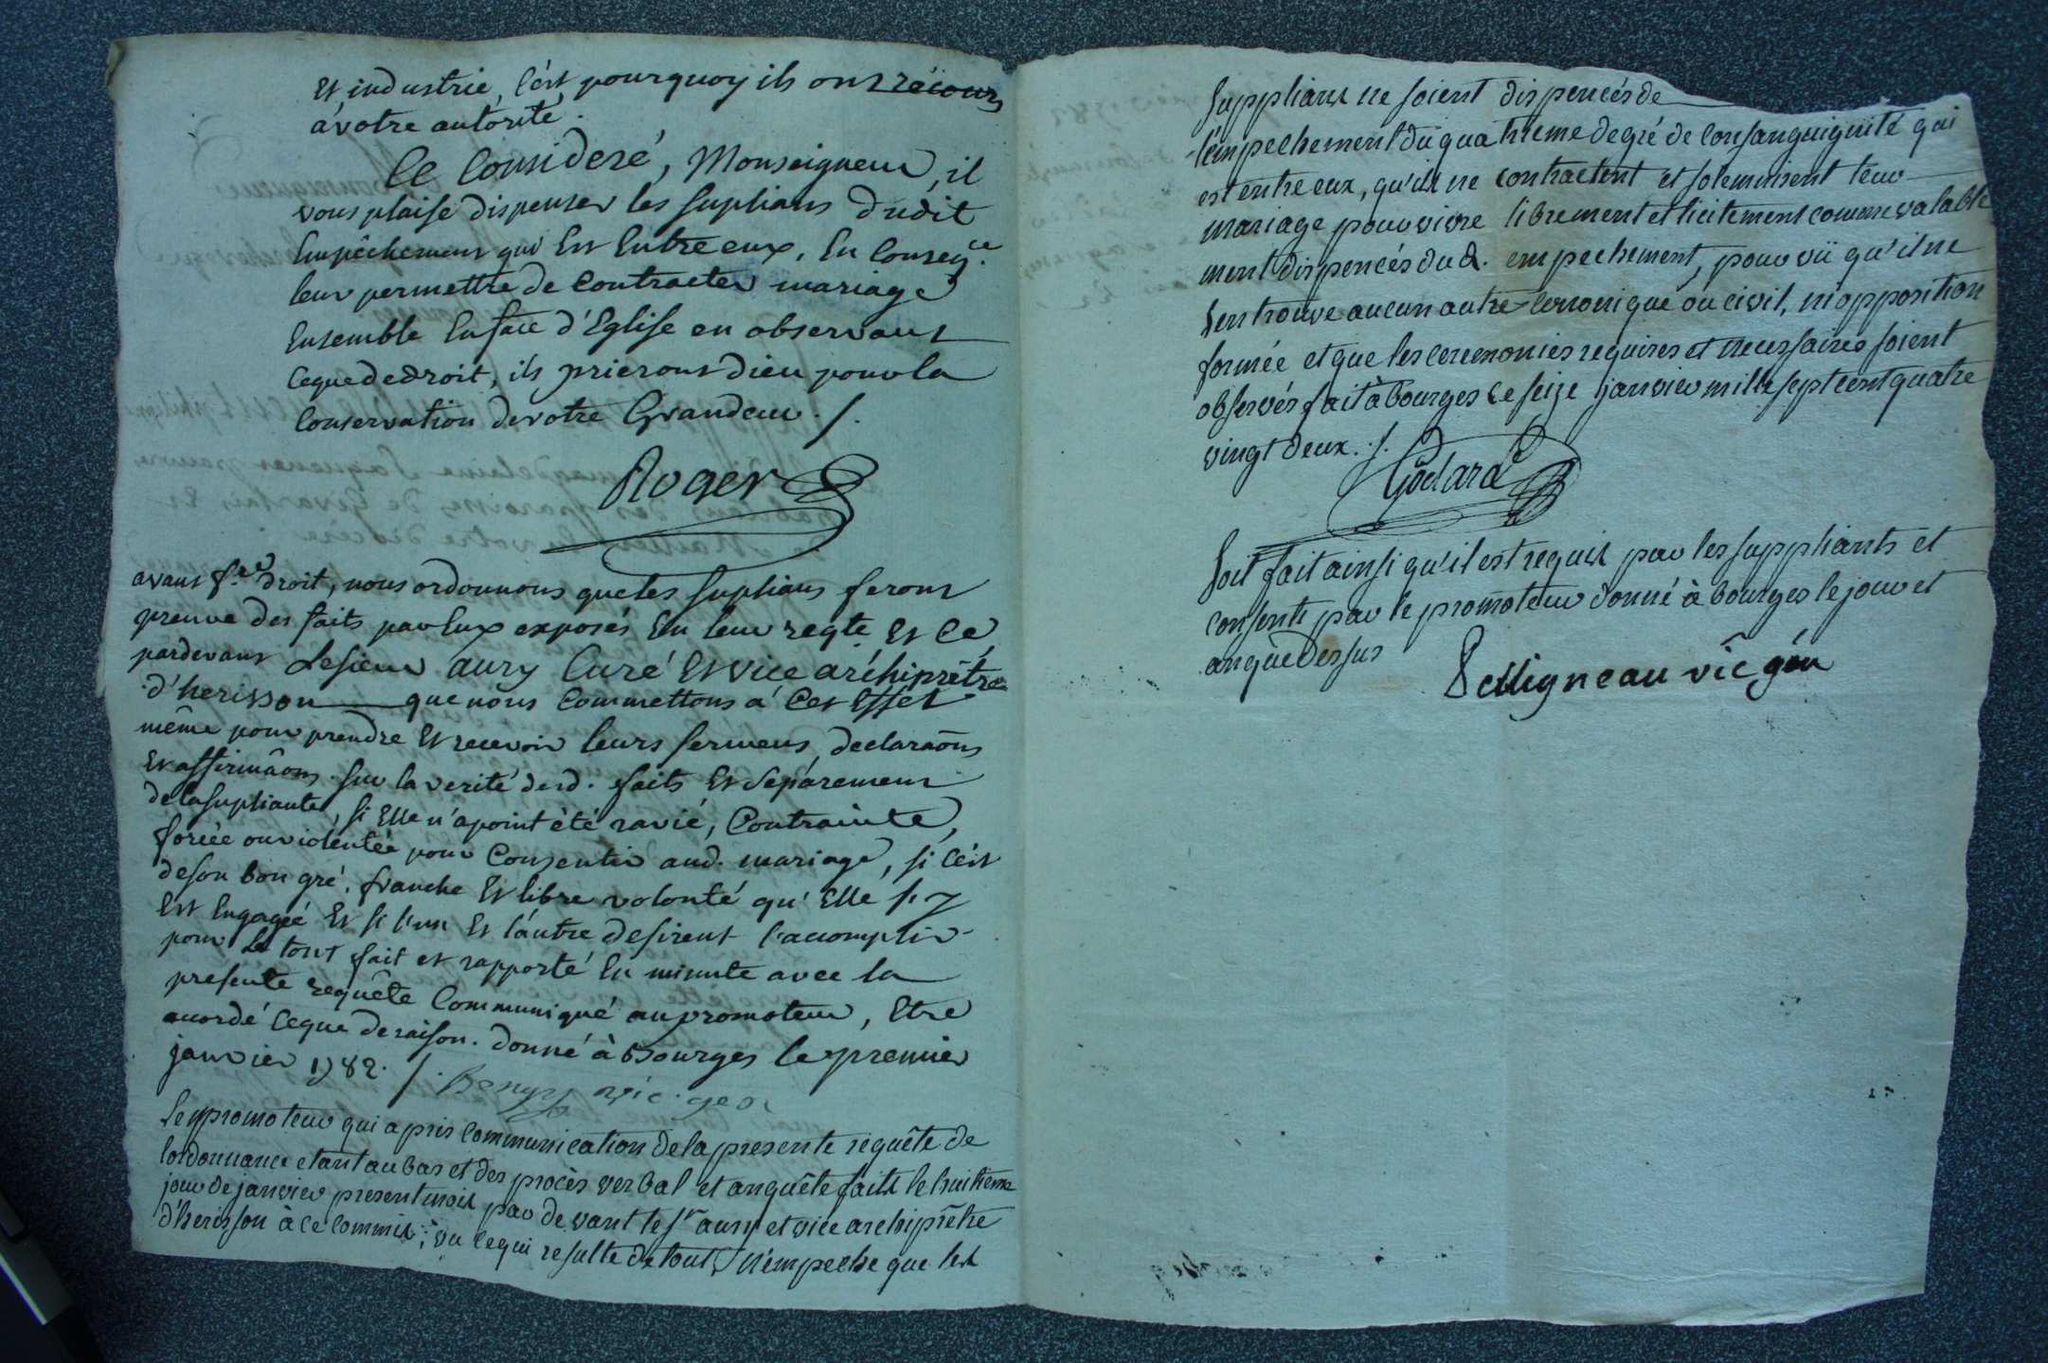 Et industrie, C'est pourquoy ils ont récours
à votre autorité.
Ce Consideré, Monseigneur, il
vous plaise dispenser les suplians dudit
Empêchement qui Est Entre eux, En Conseq.ce
leur permettre de Contracter mariage
Ensemble En face d'Eglise en observant
Ceque de droit, ils prieront Dieu pour la
Conservation de votre Grandeur ./.
Roger
avant f.re droit, nous ordonnons que les suplians feront
preuve des faits par Eux exposés En leur reqte Et Ce
pardevant Le sieur aury Curé Et vice archiprêtre
d'herisson que nous Commettons à Cet Effet
même pour prendre Et recevoir leurs sermens, declaraôns
Et affirmâons sur la verité desd. faits Et séparement
de la supliante, si Elle n'a point été ravié, Contrainte,
forcée ou violentée pour Consentir aud. mariage, si C'est
de son bon gré, franche Et libre volonté qu'Elle s'y
Est Engagée Et si l'un Et l'autre desirent l'accomplir
pour Le tout fait et rapporté En minute avec la
presente requête Communiqué au promoteur, Etre
acordé Ceque de raison. Donné à Bourges le premier
janvier 1782. /. Bengy vic. gen
Le promoteur qui a pris Communication de la presente requête de
lordonnance etant au bas et des procès verbal et anquête faits le huitieme
jour de janvier present mois par devant le Sr aury et vice archiprêtre
d'herisson à ce commis; vu ce qui resulte de tout, N'empeche que les
Suppliant ne soient dispencés de
l'empechement du quatrieme degré de Consanguignité qui
est entre eux, qu'ils ne contractent et solemnisent leur
mariage pour vivre librement et licitement comme valable
ment dispencés dud. empechement, pourvü qu'il ne
s'en trouve aucun autre Cononique ou civil, ni opposition
formée et que les ceremonies requises et necessaires soient
observés fait à bourges ce seize janvier mille sept cent quatre
vingt deux ./.
Godard
Soit fait ainsi qu'il est requis par les suppliants et
consenti par le promoteur donné à bourges le jour et
an que dessus
vic gén